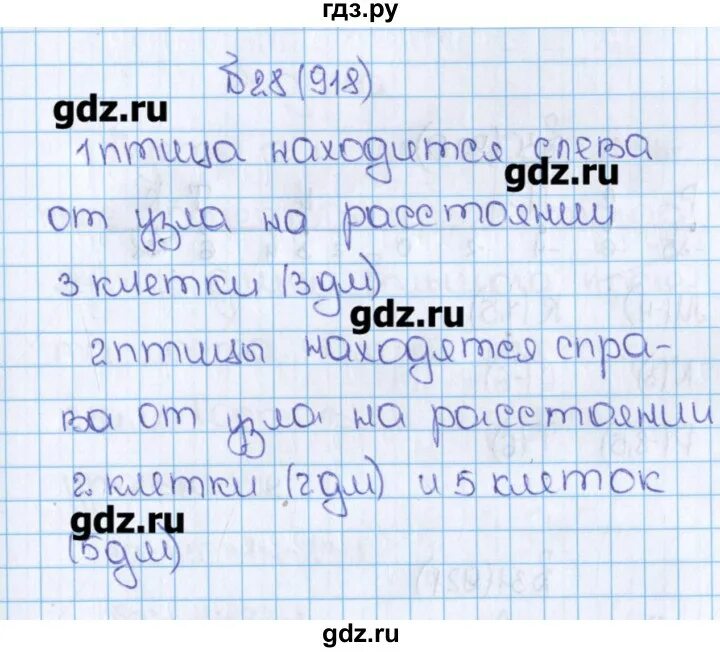 гдз.ру
Б28 (918)
gdz.ru
1 птица находится слева
gdz.ru
от узла на расстоянии
3 клетки (3 дм)
gdz.ru
2 птицы находятся спра-
ва от узла на расстоянии
2 клетки (2 дм) и 5 клеток
gdz.ru
(5 дм)
gdz.ru